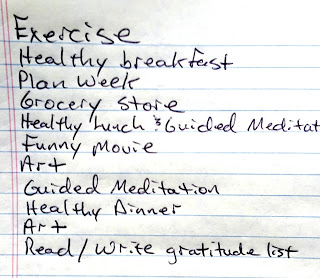 Exercise
Healthy breakfast
Plan Week
Grocery Store
Healthy Lunch & Guided Meditat
Funny Movie
Art
Guided Meditation
Healthy Dinner
Art
Read/Write gratitude list